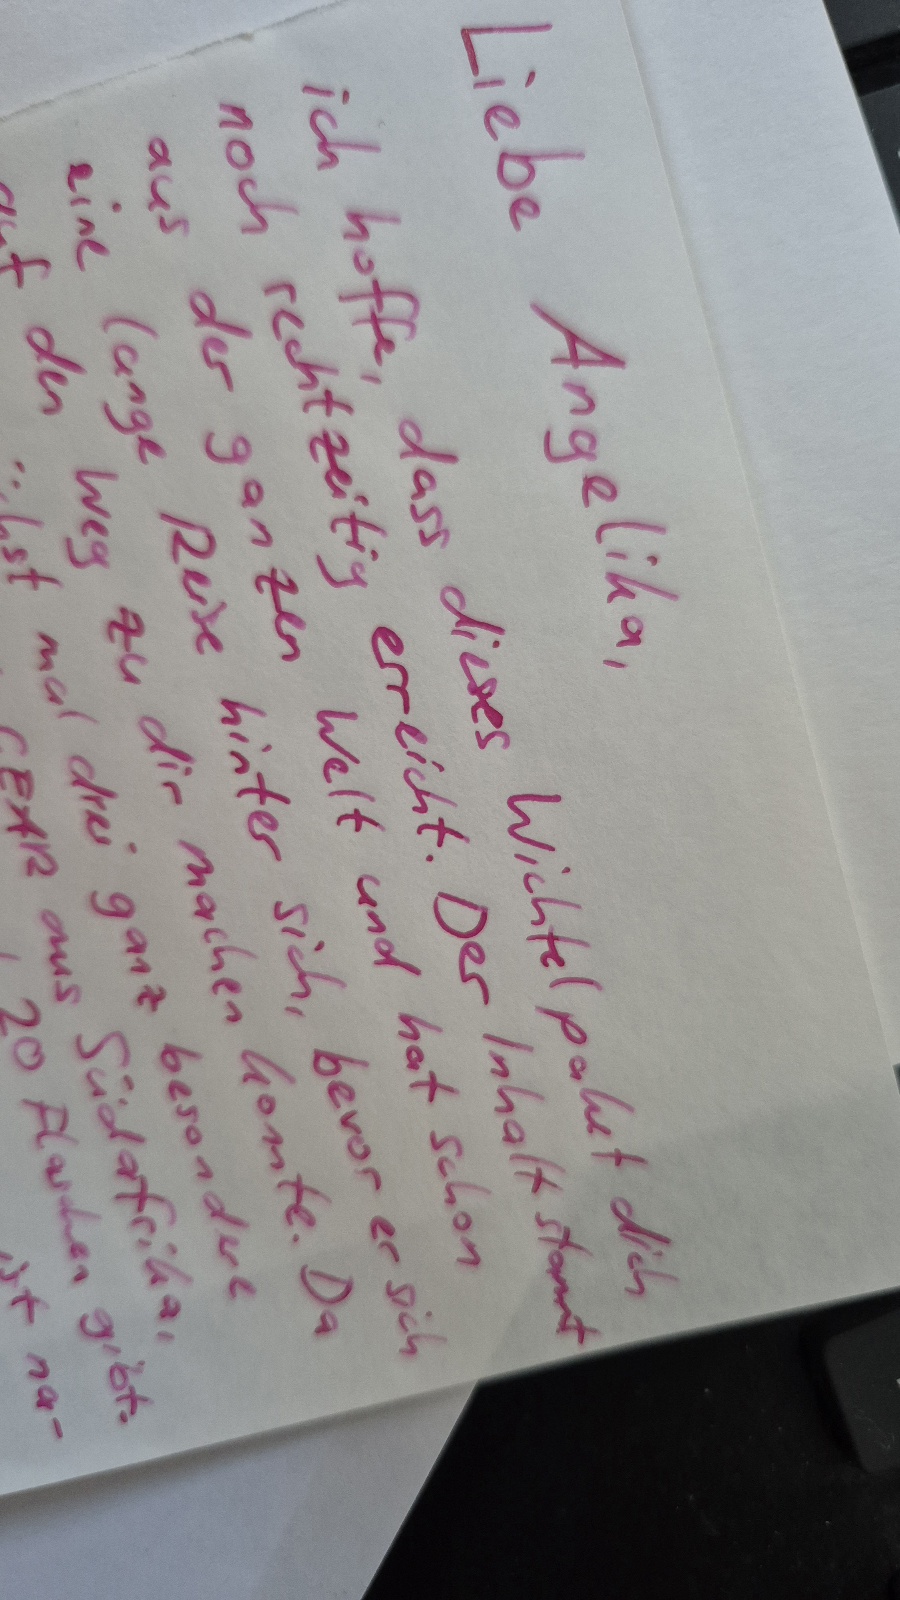 Liebe Angelika,
ich hoffe, dass dieses Wichtelpaket dich
noch rechtzeitig erreicht. Der Inhalt stammt
aus der ganzen Welt und hat schon
eine lange Reise hinter sich, bevor er sich
auf den Weg zu dir machen konnte. Da
mal drei ganz besondere
GEAR aus Südafrika,
20 Flaschen gibt.
ist na-